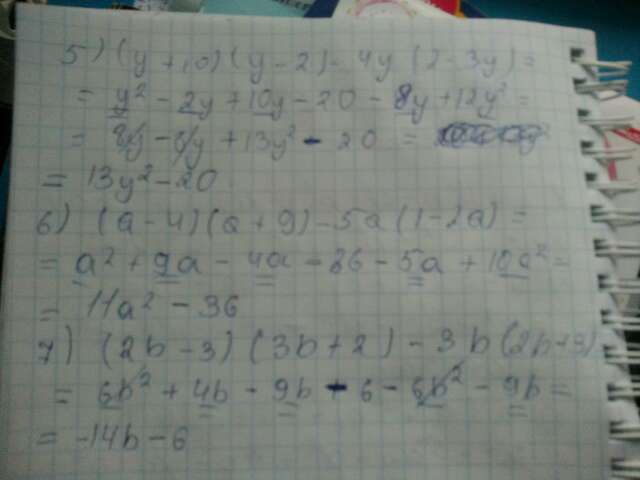 5) (y + 10) (y - 2) - 4y (2 - 3y) =
= y² - 2y + 10y - 20 - 8y + 12y² =
= 8y - 8y + 13y² - 20 =
= 13y² - 20
6) (a - 4) (a + 9) - 5a (1 - 2a) =
= a² + 9a - 4a - 36 - 5a + 10a² =
= 11a² - 36
7) (2b - 3) (3b + 2) - 3b (2b + 3)
= 6b² + 4b - 9b - 6 - 6b² - 9b =
= -14b - 6